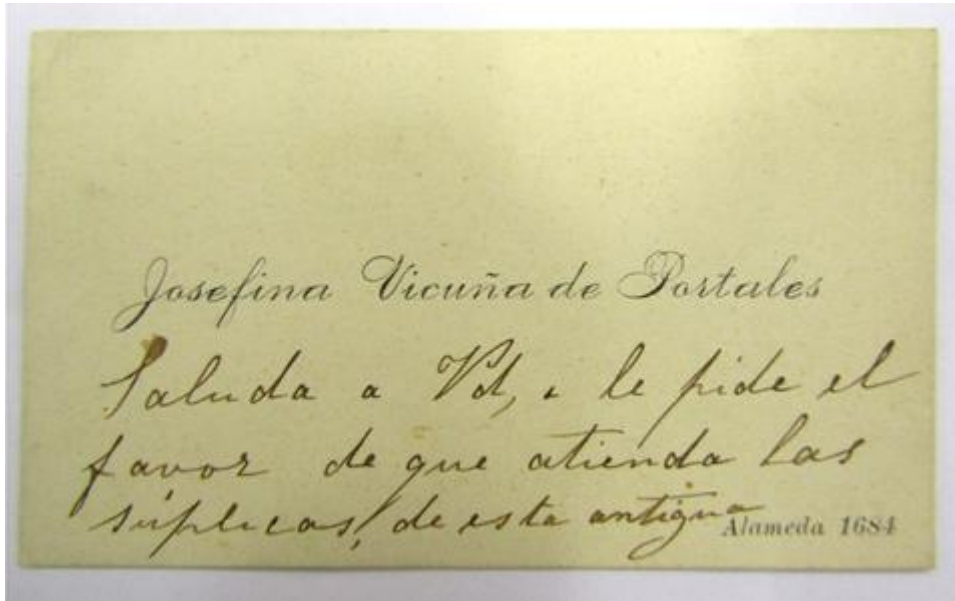 Josefina Vicuña de Portales
Saluda a Vd, i le pide el
favor de que atienda las
súplicas, de esta antigua
Alameda 1684